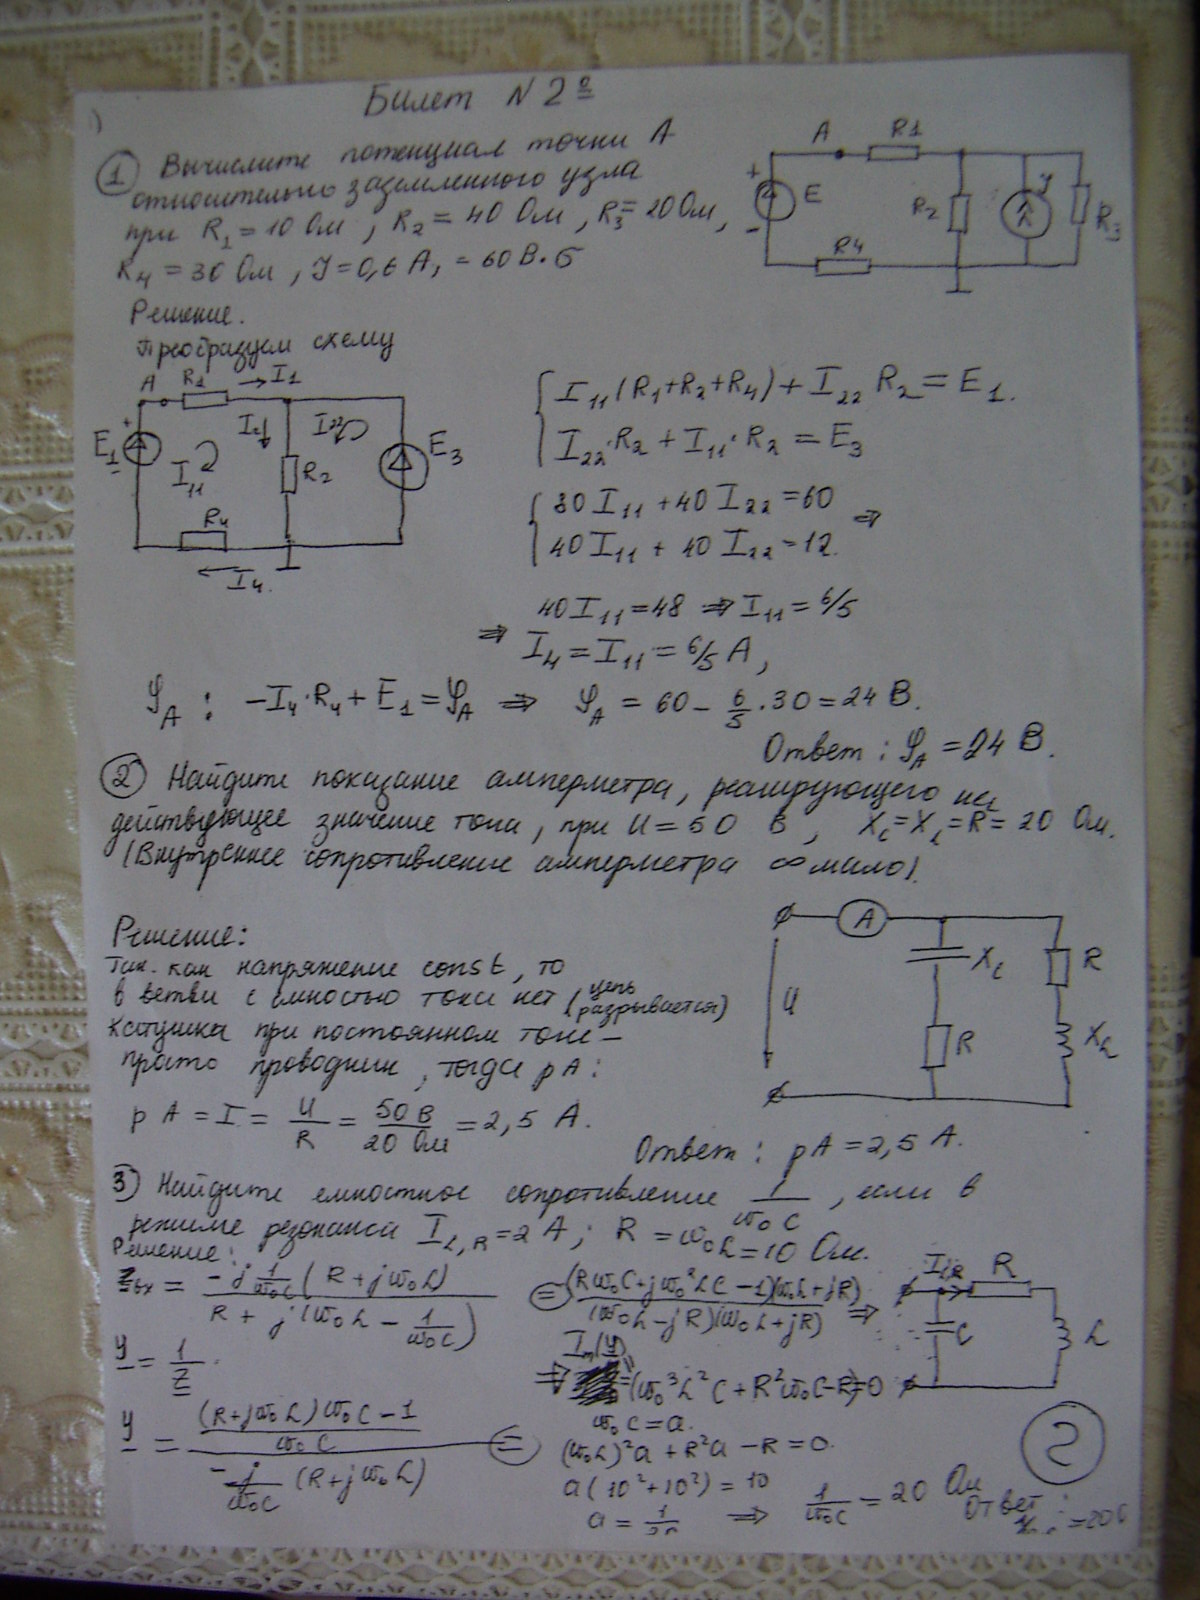 Билет N 2º
1) Вычислите потенциал точки А
относительно заземленного узла
при R1 = 10 Ом, R2 = 40 Ом, R3 = 20 Ом,
R4 = 30 Ом, J = 0,6 А, = 60 В.
A R1
+ E R2 J R3
- R4
Решение.
Преобразуем схему
A R1 → I1
+ E1 - I11 I2 R2 I22 E3
R4
I4.
I11(R1+R2+R4) + I22 R2 = E1.
I22·R2 + I11·R2 = E3
80 I11 + 40 I22 = 60
40 I11 + 40 I22 = 12. ⇒
40 I11 = 48 ⇒ I11 = 6/5
⇒ I4 = I11 = 6/5 А,
φA : -I4·R4 + E1 = φA ⇒ φA = 60 - 6/5 · 30 = 24 В.
Ответ : φA = 24 В.
2) Найдите показание амперметра, реагирующего на
действующее значение тока, при U = 50 В, Xc = XL = R = 20 Ом.
(Внутреннее сопротивление амперметра ∞ мало).
A
U Xc R
R XL
Решение:
Так как напряжение const, то
в ветви с емкостью тока нет (цепь разрывается)
Катушка при постоянном токе –
просто проводник, тогда pA :
pA = I = U/R = 50 В/20 Ом = 2,5 А.
Ответ : pA = 2,5 А.
3) Найдите емкостное сопротивление 1/ω0C, если в
режиме резонанса IL,R = 2 А; R = ω0L = 10 Ом.
Решение:
Zвх = -j 1/ω0C (R + jω0L) / R + j(ω0L - 1/ω0C)
= (Rω0C + jω0²LC - 1)(ω0L + jR) / (ω0L - jR)(ω0L + jR) ⇒
R
C L
Y = 1/Z.
⇒ Im(Y) = (ω0³L²C + R²ω0C - R) = 0
Y = (R + jω0L)ω0C - 1 / ω0C / -j/ω0C (R + jω0L) =
ω0C = a.
(ω0L)²a + R²a - R = 0.
a(10² + 10²) = 10
a = 1/20 ⇒ 1/ω0C = 20 Ом
Ответ :
2